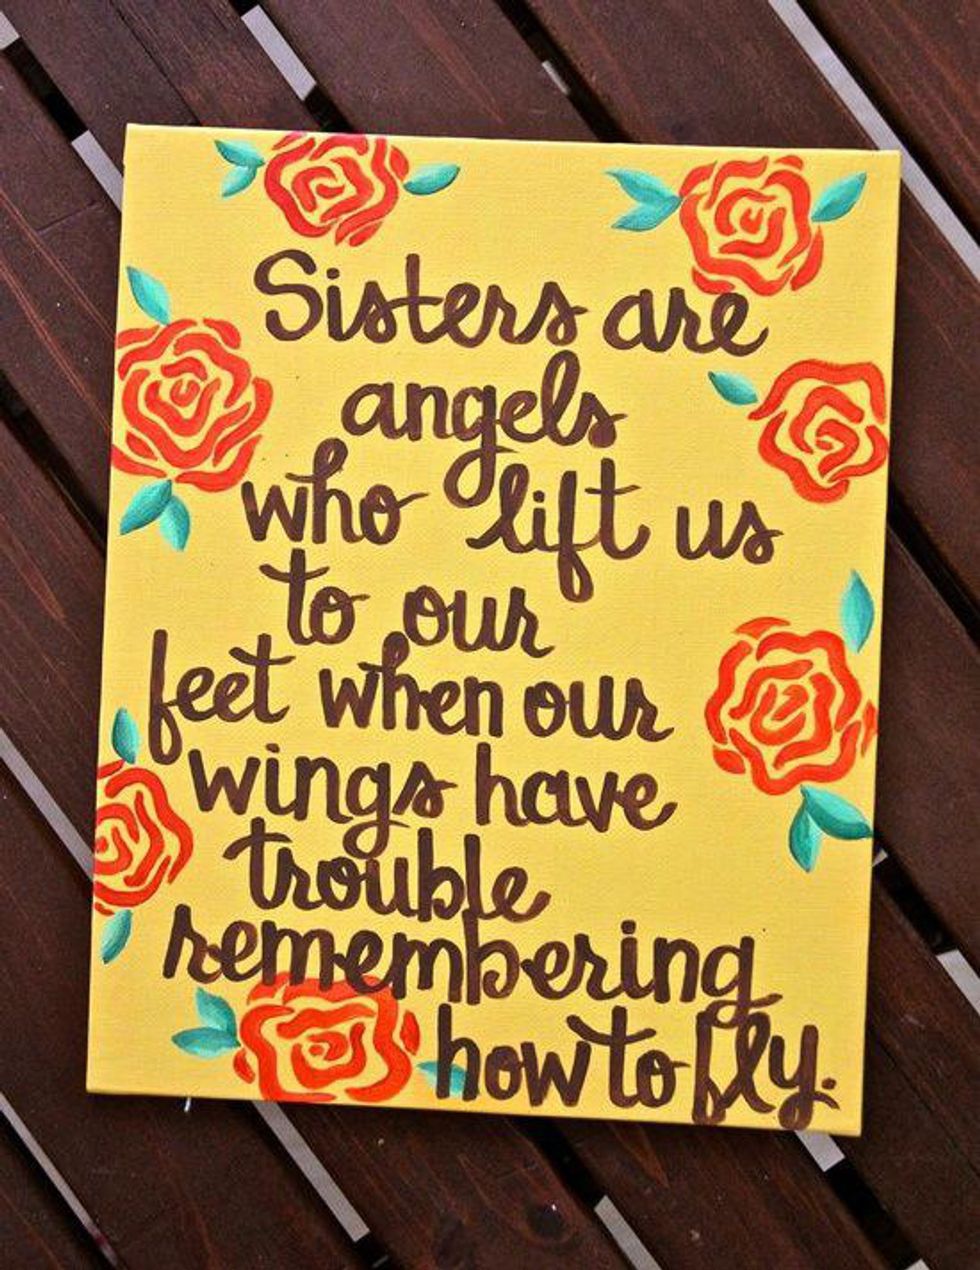 Sisters are
angels
who lift us
to our
feet when our
wings have
trouble
remembering
how to fly.